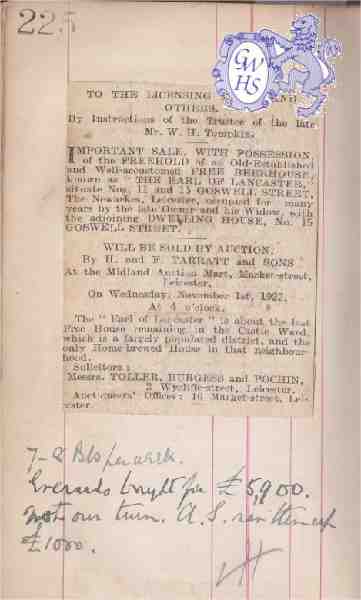 225
GWHS
TO THE LICENSING AND
OTHERS.
By Instructions of the Trustee of the late
Mr. W. H. Tompkin.
IMPORTANT SALE, WITH POSSESSION
of the FREEHOLD of an Old-Established
and Well-accustomed FREE BEERHOUSE,
known as "THE EARL OF LANCASTER,"
situate Nos. 11 and 13 GOSWELL STREET,
The Newarkes, Leicester, occupied for many
years by the late Owner and his Widow, with
the adjoining DWELLING HOUSE, No. 15
GOSWELL STREET.
WILL BE SOLD BY AUCTION,
By H. and F. TARRATT and SONS
At the Midland Auction Mart, Market-street,
Leicester,
On Wednesday, November 1st, 1922,
At 4 o'clock.
The "Earl of Lancaster" is about the last
Free House remaining in the Castle Ward,
which is a largely populated district, and the
only Home-brewed House in that neighbour-
hood.
Solicitors:
Messrs. TOLLER, BURGESS and POCHIN,
2 Wycliffe-street, Leicester.
Auctioneers' Offices: 16 Market-street, Lei-
cester.
7-8 Bls per week.
Everards bought for £5,900.
not our turn. A.S. ran them up
£1000.